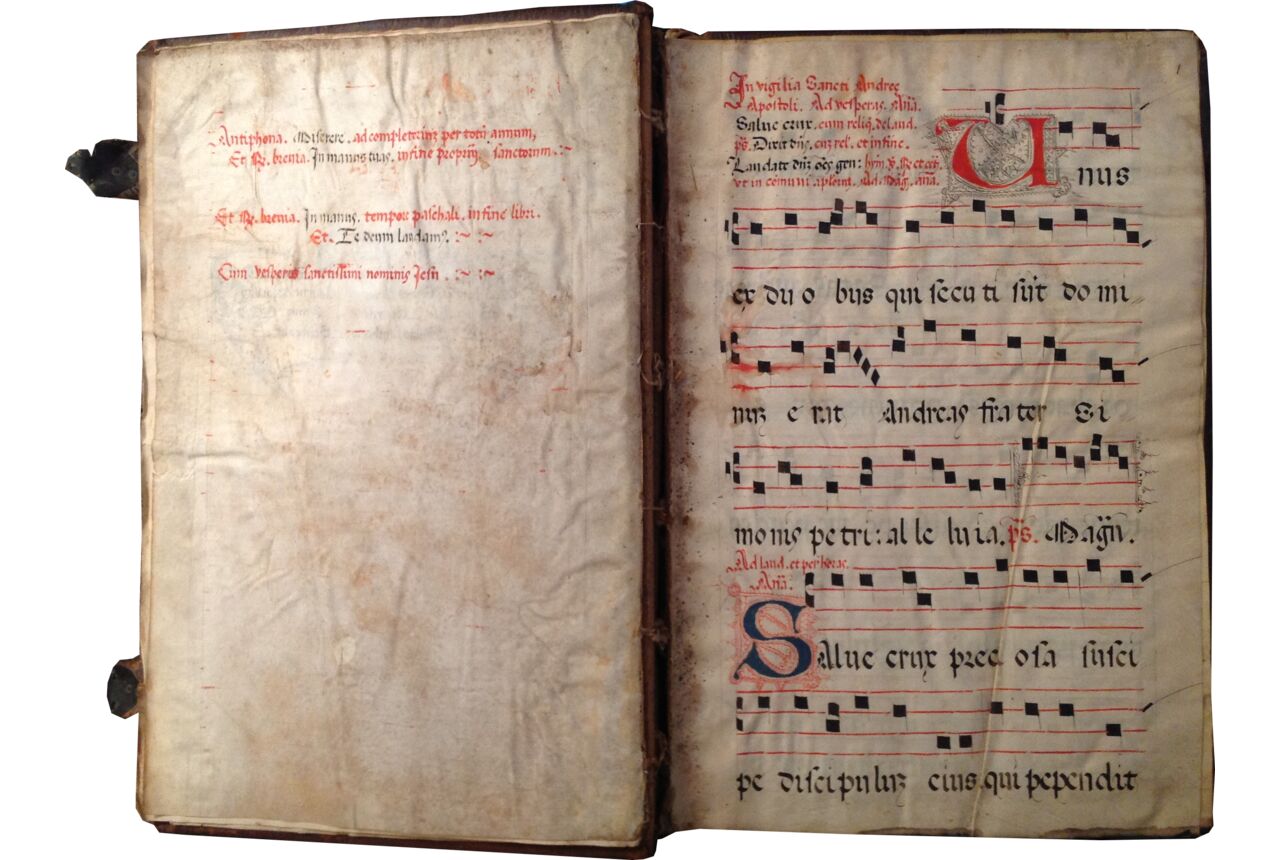 Antiphona. Miserere. ad completoriũ per totũ annum,
Et ℟. brevia. In manus tuas, in fine propriȷ̃ sanctorum.
Et ℟. brevia. In manus, tempore paschali, in fine libri.
Et. Te deum laudamus.
Cum vesperis sanctissimi nominis Jesu.
1
In vigilia Sancti Andreę
Apostoli. Ad vesperas. Aña.
Salue crux. cum reliq. de laud.
ps. Dixit dñs, cum rel. et in fine.
Laudate dñz oẽs gen: hym. ℣. ℟ et cet.
vt in comuni aplorũ. Ad Mag. aña.
Unus
ex du o bus qui secu ti sũt do mi
nũ e rat Andreas fra ter Si
monis pe tri: al le luia. ps. Magñ.
Ad laud. et per horas.
Aña.
Salue crux preci osa susci
pe discipulũ eius, qui pependit